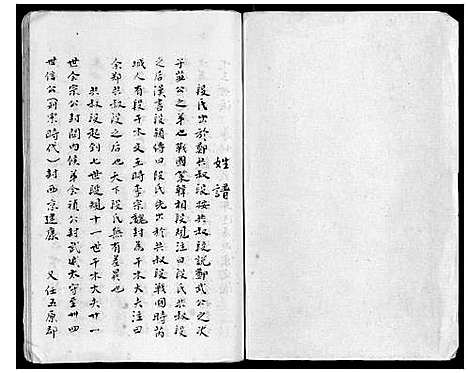 姓譜
段氏出於鄭共叔段按共叔段說鄭武公之次
子莊公之弟也戰國策韓相段規注曰段氏共叔段
之后漢書段熲傳曰段氏先出於共叔段戰國時芮
城人有段干木又至時李宗魏封為干木大夫注曰
余鄭共叔段之后也天下段氏無有差異也
共叔段起到七世蹤規十一世干木大夫廿一
世會宗公封關內候弟會禎公封武威太守至卅四
世信公（前宗時代）封西京建康 又任五原郡